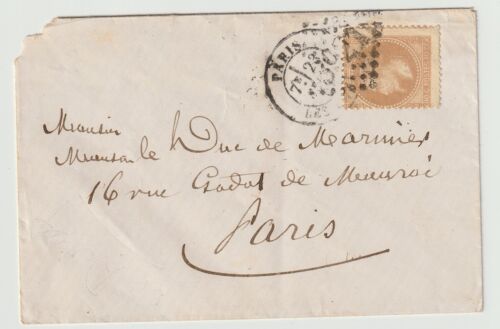 PARIS
7E 23
DÉC
Monsieur
Monsieur le Duc de Marinier
16 rue Godot de Mauroi
Paris